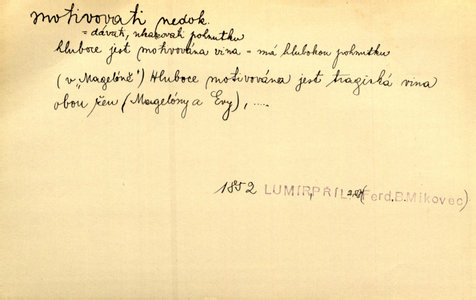 motivovati nedok.
= dávati, ukazovati pohnutku
hluboce jest motivována vina = má hlubokou pohnutku
(v „Magelóně") Hluboce motivována jest tragická vina
obou žen (Magelóny a Evy), ....
1852 LUMÍR, PŘÍL. (Ferd.B.Mikovec)